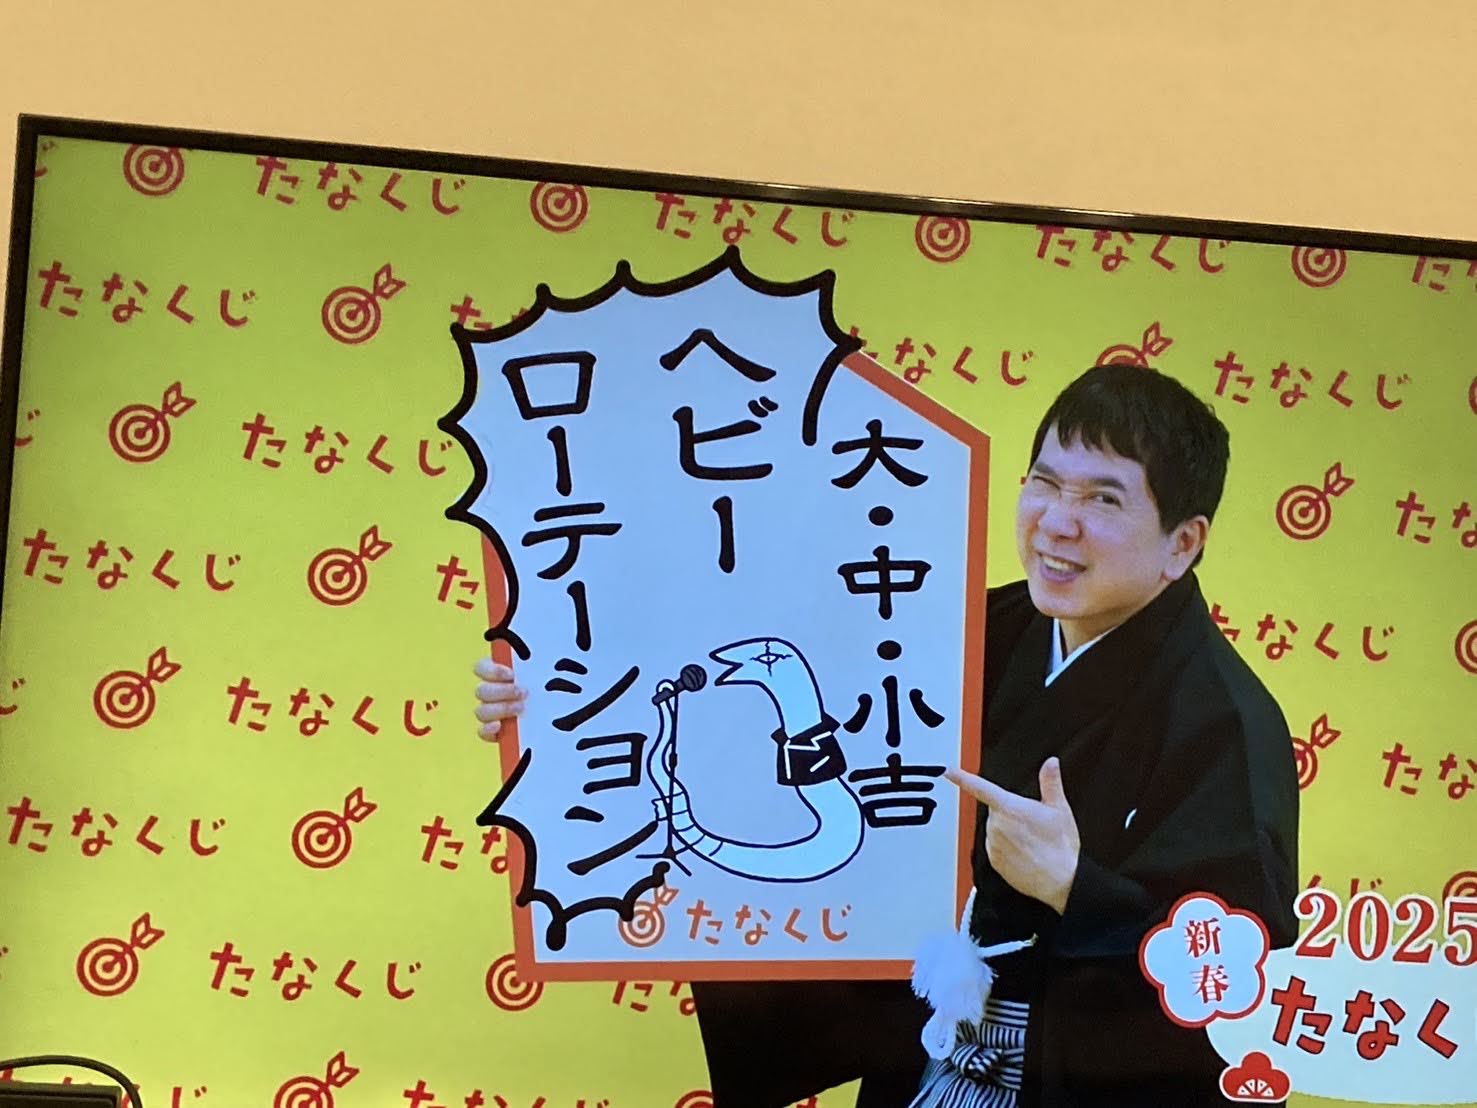 大・中・小吉
ヘビー
ローテーション
たなくじ
新春
2025
たなく
たなくじ
たなくじ
たなくじ
たなくじ
たなくじ
なくじ
たなくじ
たなくじ
たな
たなくじ
た
なくじ
たな
たなくじ
たなくじ
たな
たなくじ
たな
くじ